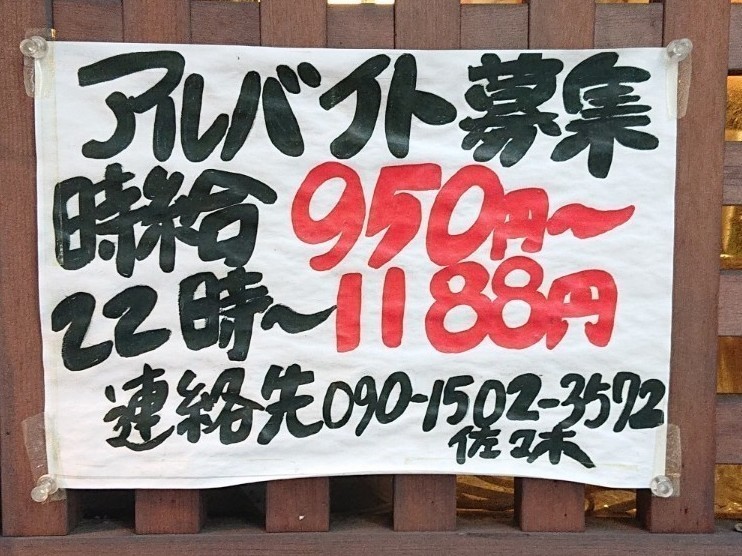 アルバイト募集
時給 950円〜
22時〜1188円
連絡先090-1502-3572
佐々木